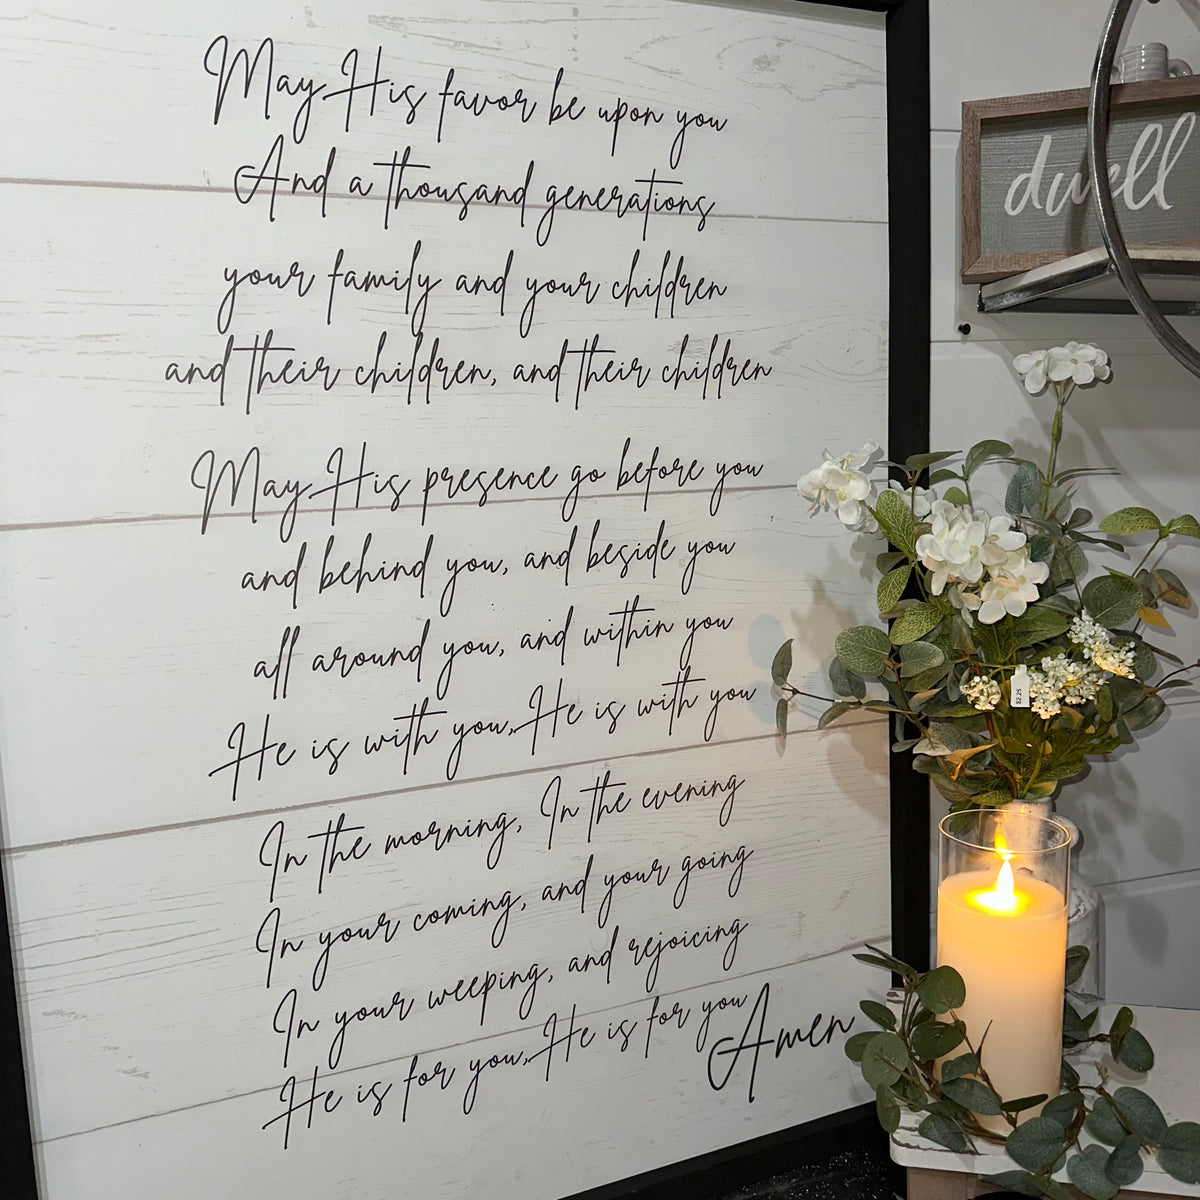 May His favor be upon you
And a thousand generations
your family and your children
and their children, and their children
May His presence go before you
and behind you, and beside you
all around you, and within you
He is with you, He is with you
In the morning, In the evening
In your coming, and your going
In your weeping, and rejoicing
He is for you, He is for you
Amen
dwell
$2.25